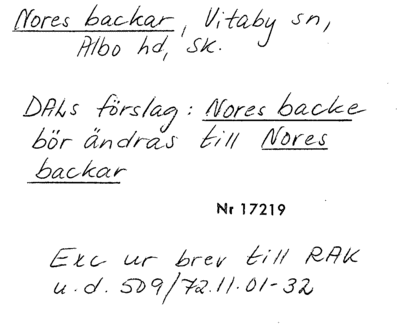 Nores backar, Vitaby sn,
Albo hd, Sk.
DALs förslag: Nores backe
bör ändras till Nores
backar
Nr 17219
Exc ur brev till RAK
u.d. 509/72.11.01-32